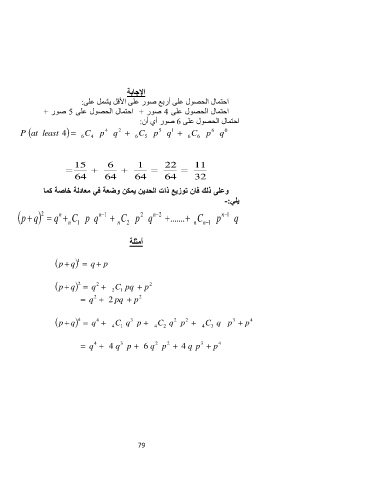 الإجابة
احتمال الحصول على أربع صور على الأقل يشمل على:
احتمال الحصول على 4 صور + احتمال الحصول على 5 صور +
احتمال الحصول على 6 صور أي أن:
P (at least 4) = ₆C₄ p⁴ q² + ₆C₅ p⁵ q¹ + ₆C₆ p⁶ q⁰
= 15/64 + 6/64 + 1/64 = 22/64 = 11/32
وعلى ذلك فان توزيع ذات الحدين يمكن وضعة في معادلة خاصة كما
يلي:-
(p+q)² = qⁿ + ₙC₁ p qⁿ⁻¹ + ₙC₂ p² qⁿ⁻² + ....... + ₙCₙ₋₁ pⁿ⁻¹ q
أمثلة
(p+q)¹ = q + p
(p+q)² = q² + ₂C₁ pq + p²
= q² + 2pq + p²
(p+q)⁴ = q⁴ + ₄C₁ q³ p + ₄C₂ q² p² + ₄C₃ q p³ + p⁴
= q⁴ + 4 q³ p + 6 q² p² + 4 q p³ + p⁴
79